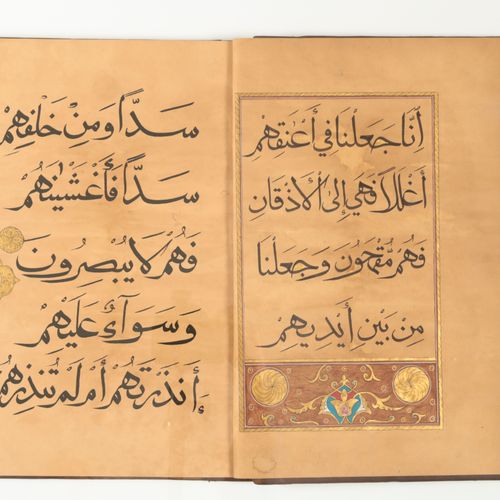 إِنَّا جَعَلْنَا فِي أَعْنَٰقِهِمْ
أَغْلَٰلًا فَهِيَ إِلَى الْأَذْقَانِ
فَهُمْ مُقْمَحُونَ وَجَعَلْنَا
مِنْ بَيْنِ أَيْدِيهِمْ
سَدًّا وَمِنْ خَلْفِهِمْ
سَدًّا فَأَغْشَيْنَٰهُمْ
فَهُمْ لَا يُبْصِرُونَ
وَسَوَآءٌ عَلَيْهِمْ
ءَأَنذَرْتَهُمْ أَمْ لَمْ تُنذِرْهُمْ